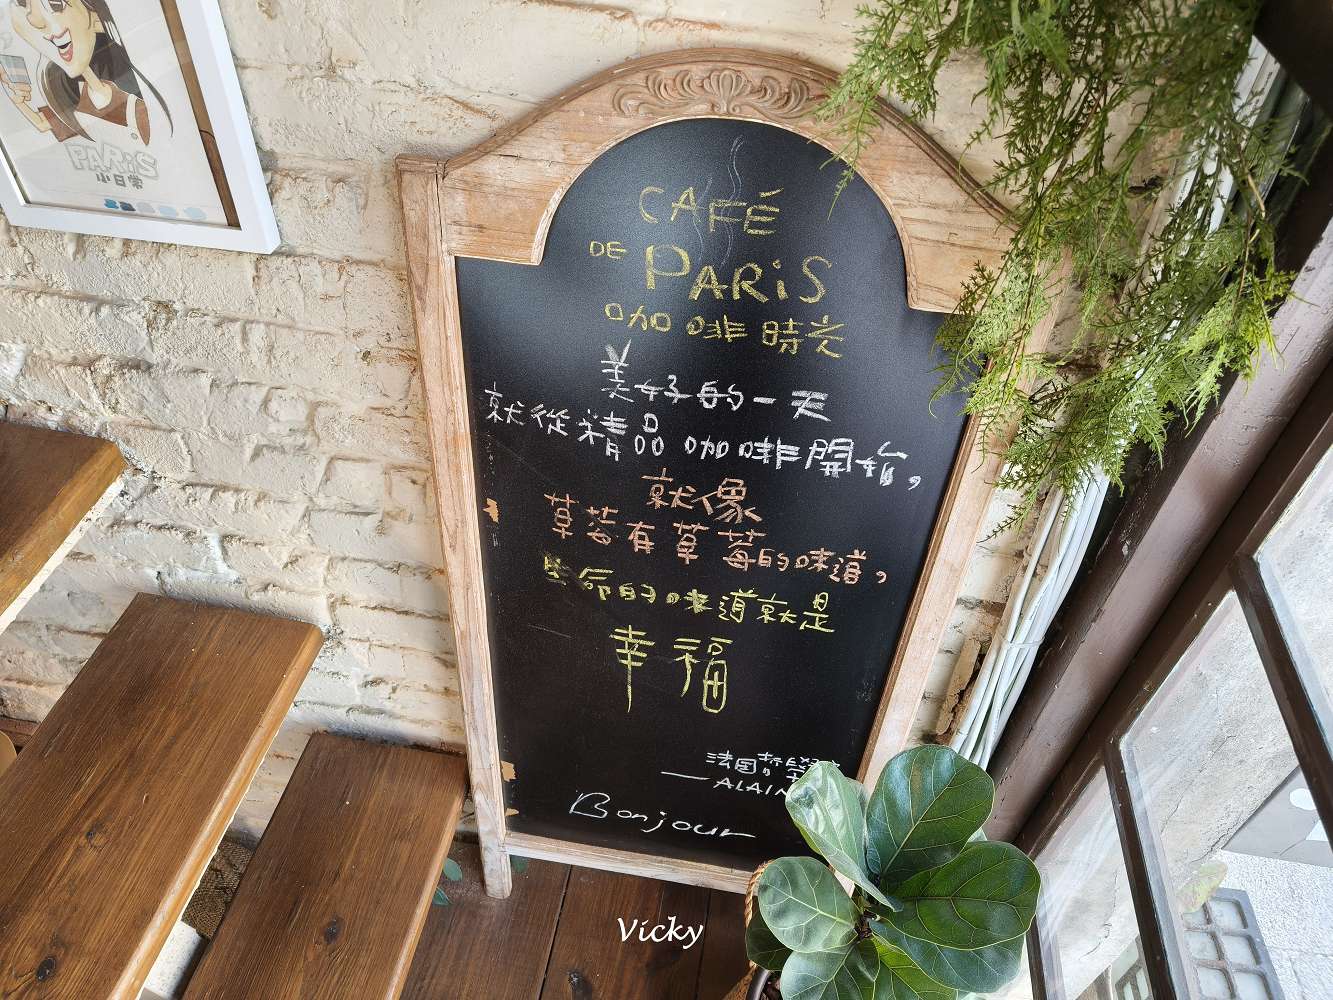 PARiS
小日常
CAFÉ
DE PARiS
咖啡時光
美好的一天
就從精品咖啡開始,
就像
草莓有草莓的味道,
生命的味道就是
幸福
法國哲學
— ALAIN
Bonjour
Vicky